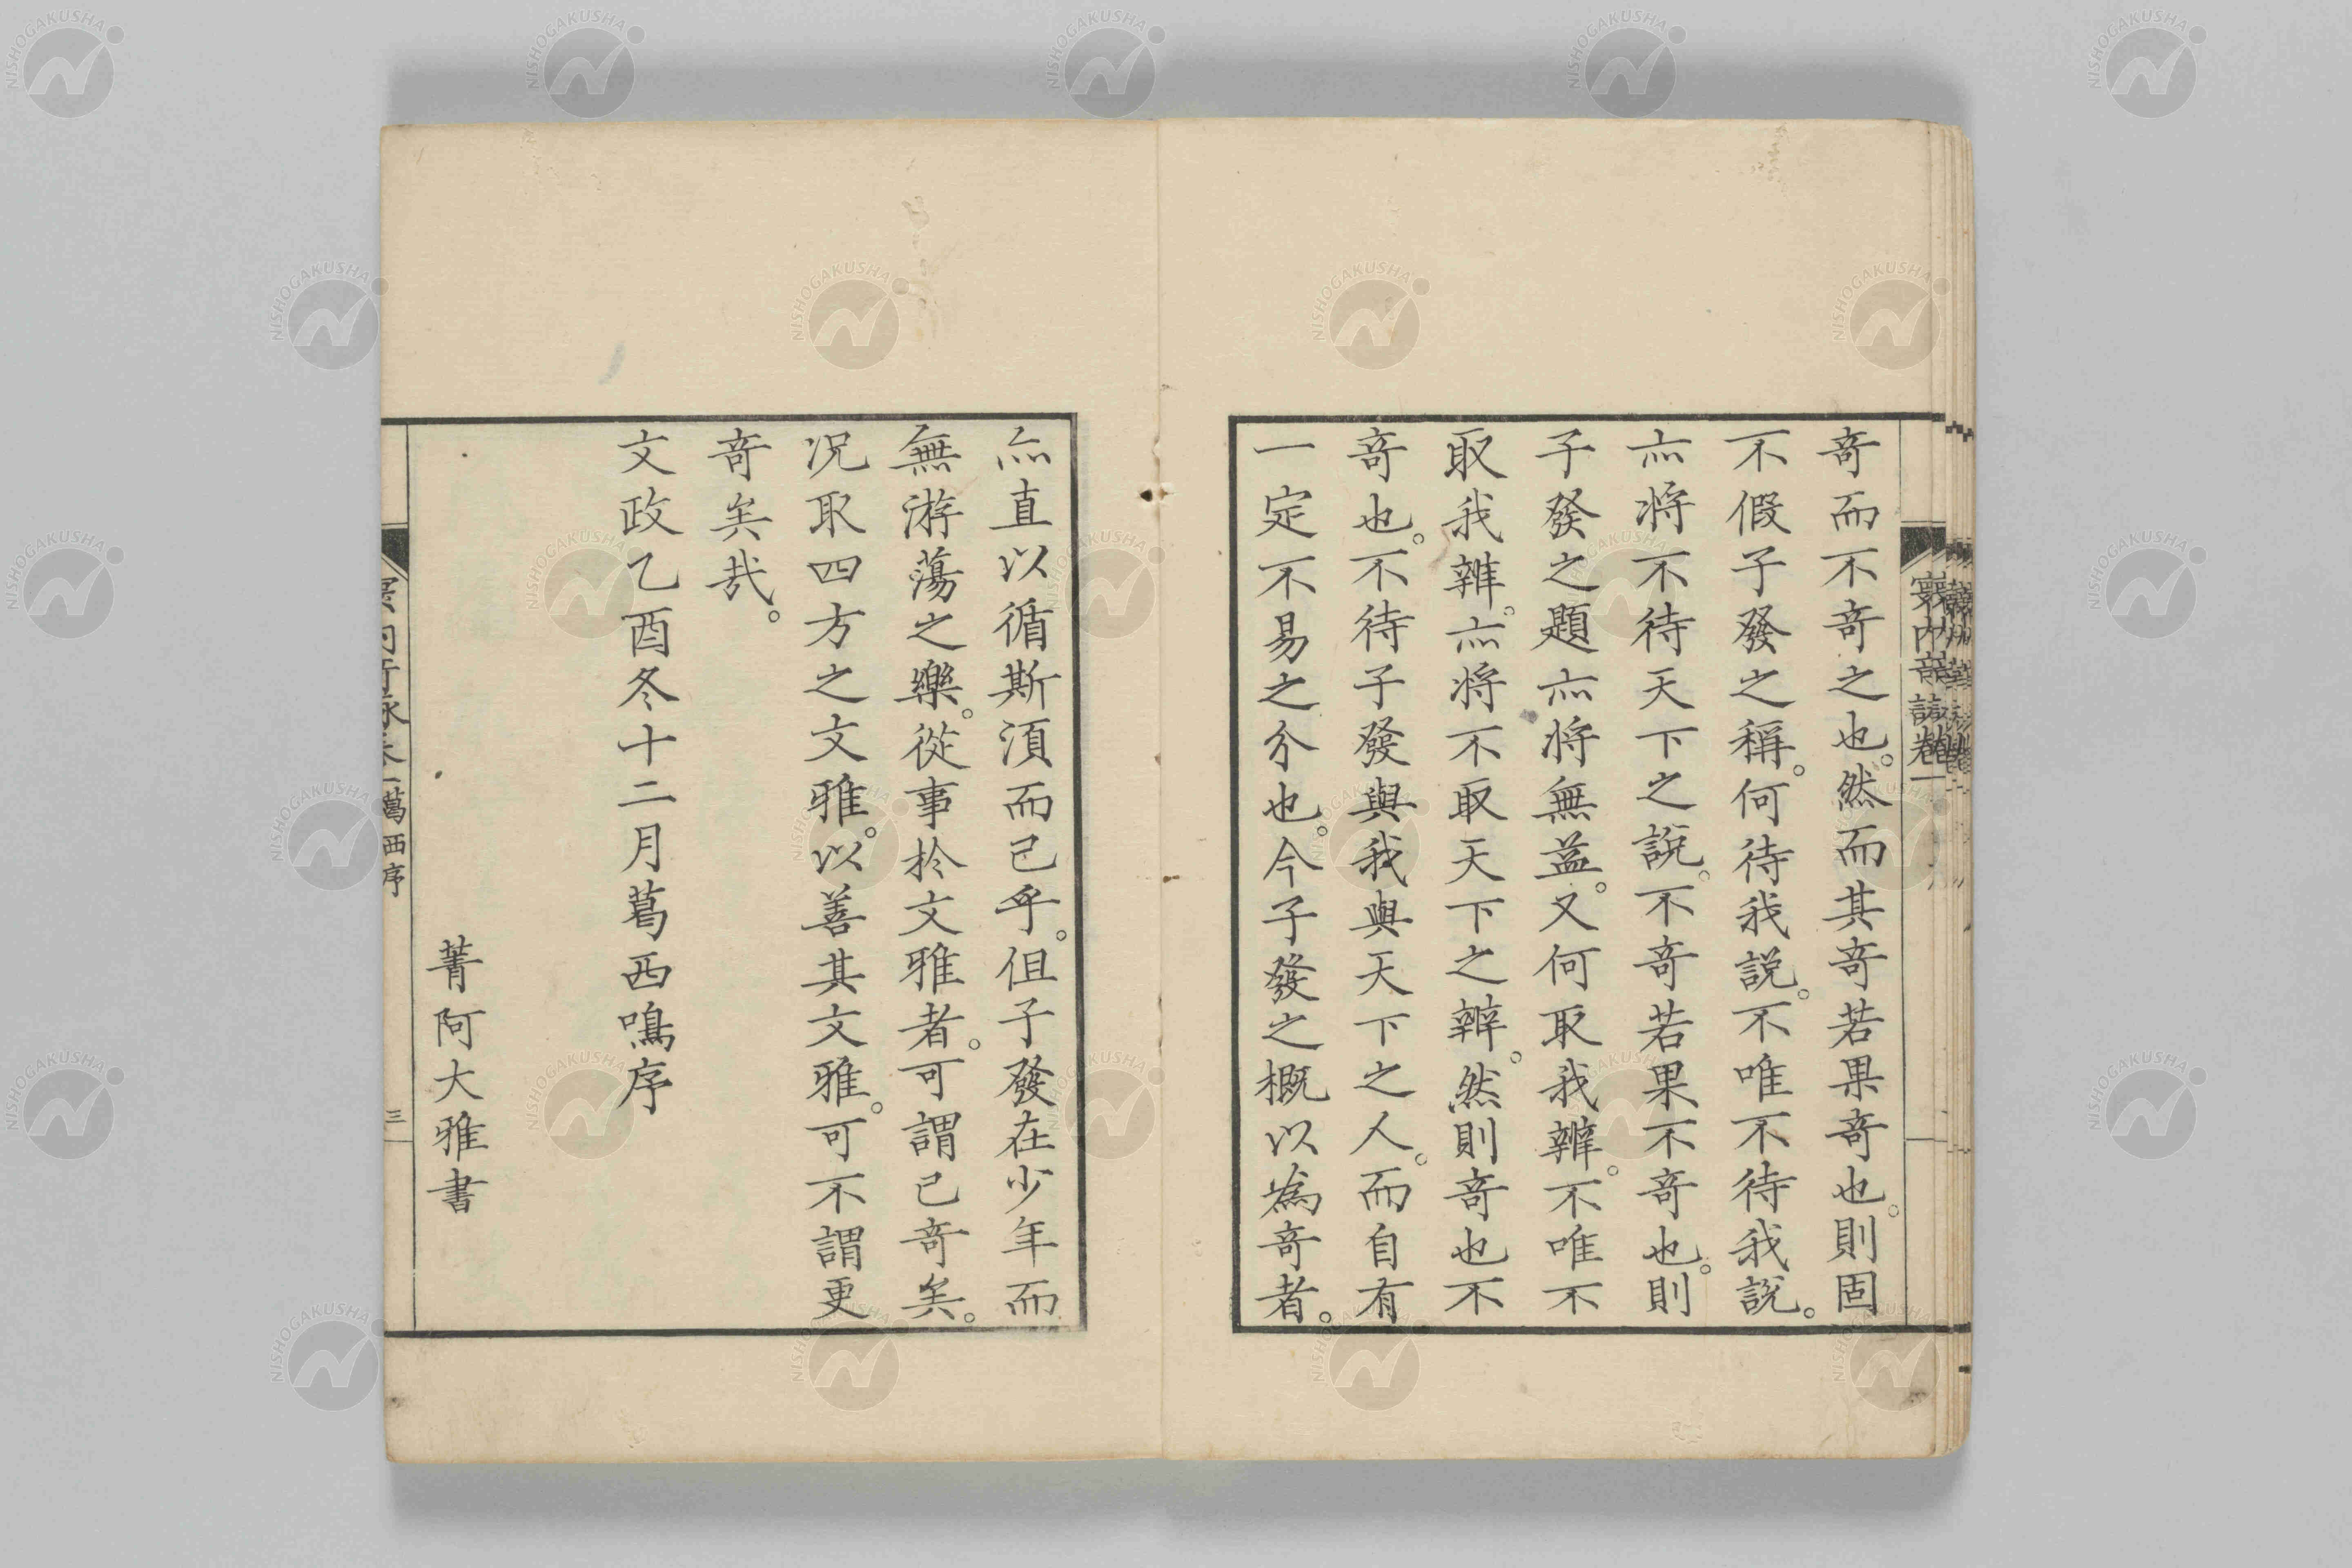 奇而不奇之也。然而其奇若果奇也。則固
不假子發之稱。何待我說。不唯不待我說。
亦將不待天下之說。不奇若果不奇也。則
子發之題亦將無益。又何取我辨。不唯不
取我辨。亦將不取天下之辨。然則奇也不
奇也。不待子發與我與天下之人。而自有
一定不易之分也。今子發之概以為奇者。
亦直以循斯須而已乎。但子發在少年而
無游蕩之樂。從事於文雅者。可謂已奇矣。
况取四方之文雅。以善其文雅。可不謂更
奇矣哉。
文政乙酉冬十二月葛西鳴序
菁阿大雅書
葛西序
三
NISHOGAKUSHA